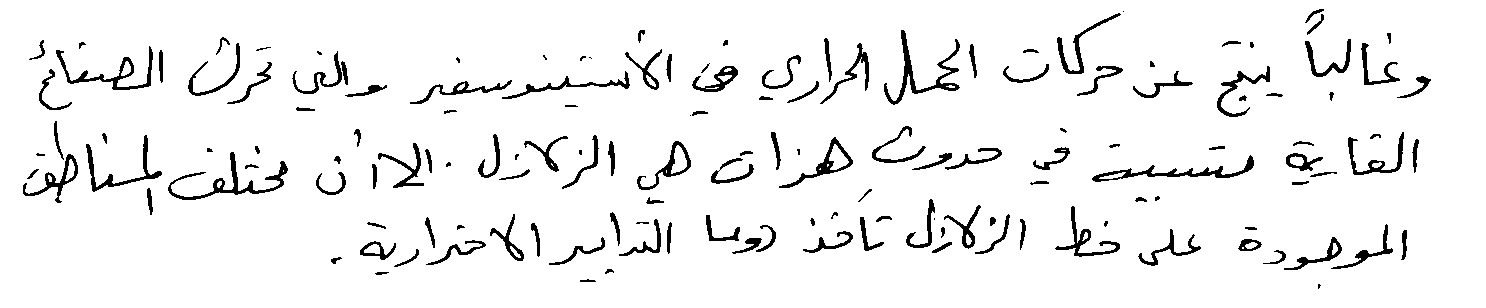 وغالباً ينتج عن حركات الحمل الحراري في الأستينوسفير والتي تحرك الصفائح
القارية متسببة في حدوث هزات هي الزلازل . إلا أن مختلف المناطق
الموجودة على خط الزلازل تأخذ دوما التدابير الاحترازية .